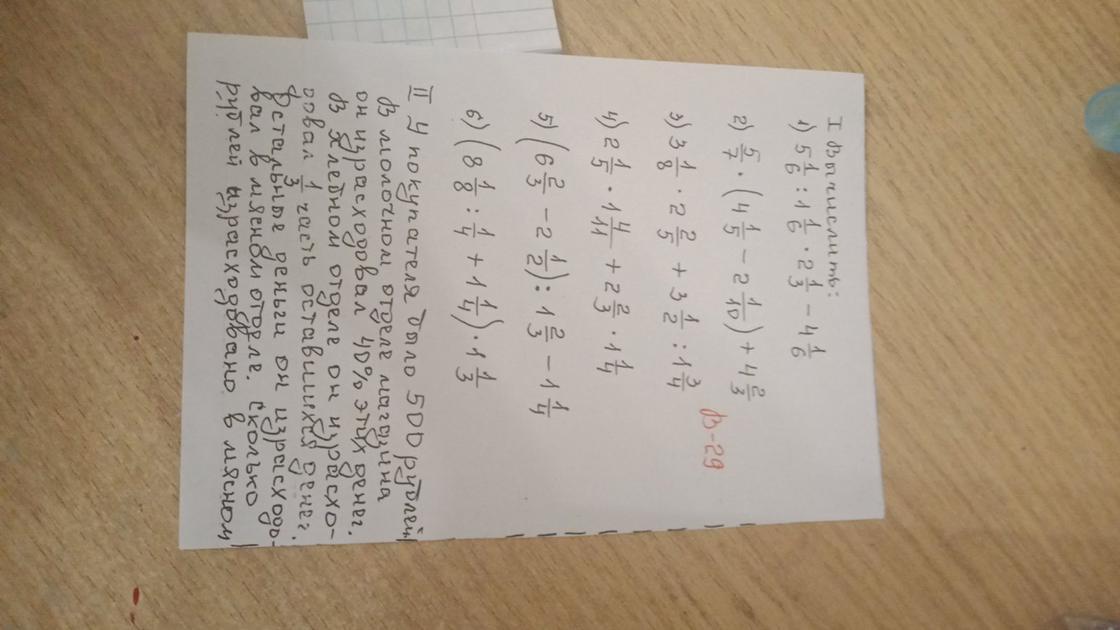 I Вычислить:
1) 5 1/6 : 1 1/6 · 2 1/3 - 4 1/6
2) 5/7 · (4 1/5 - 2 1/10) + 4 2/3
В-29
3) 3 1/8 · 2 2/5 + 3 1/2 : 1 3/4
4) 2 1/5 · 1 4/11 + 2 2/3 · 1 1/4
5) (6 2/3 - 2 1/2) : 1 2/3 - 1 1/4
6) (8 1/8 : 1/4 + 1 1/4) · 1 1/3
II У покупателя было 500 рублей
В молочном отделе магазина
он израсходовал 40% этих денег.
В хлебном отделе он израсхо-
довал 1/3 часть оставшихся денег.
Остальные деньги он израсходо-
вал в мясном отделе. Сколько
рублей израсходовано в мясном